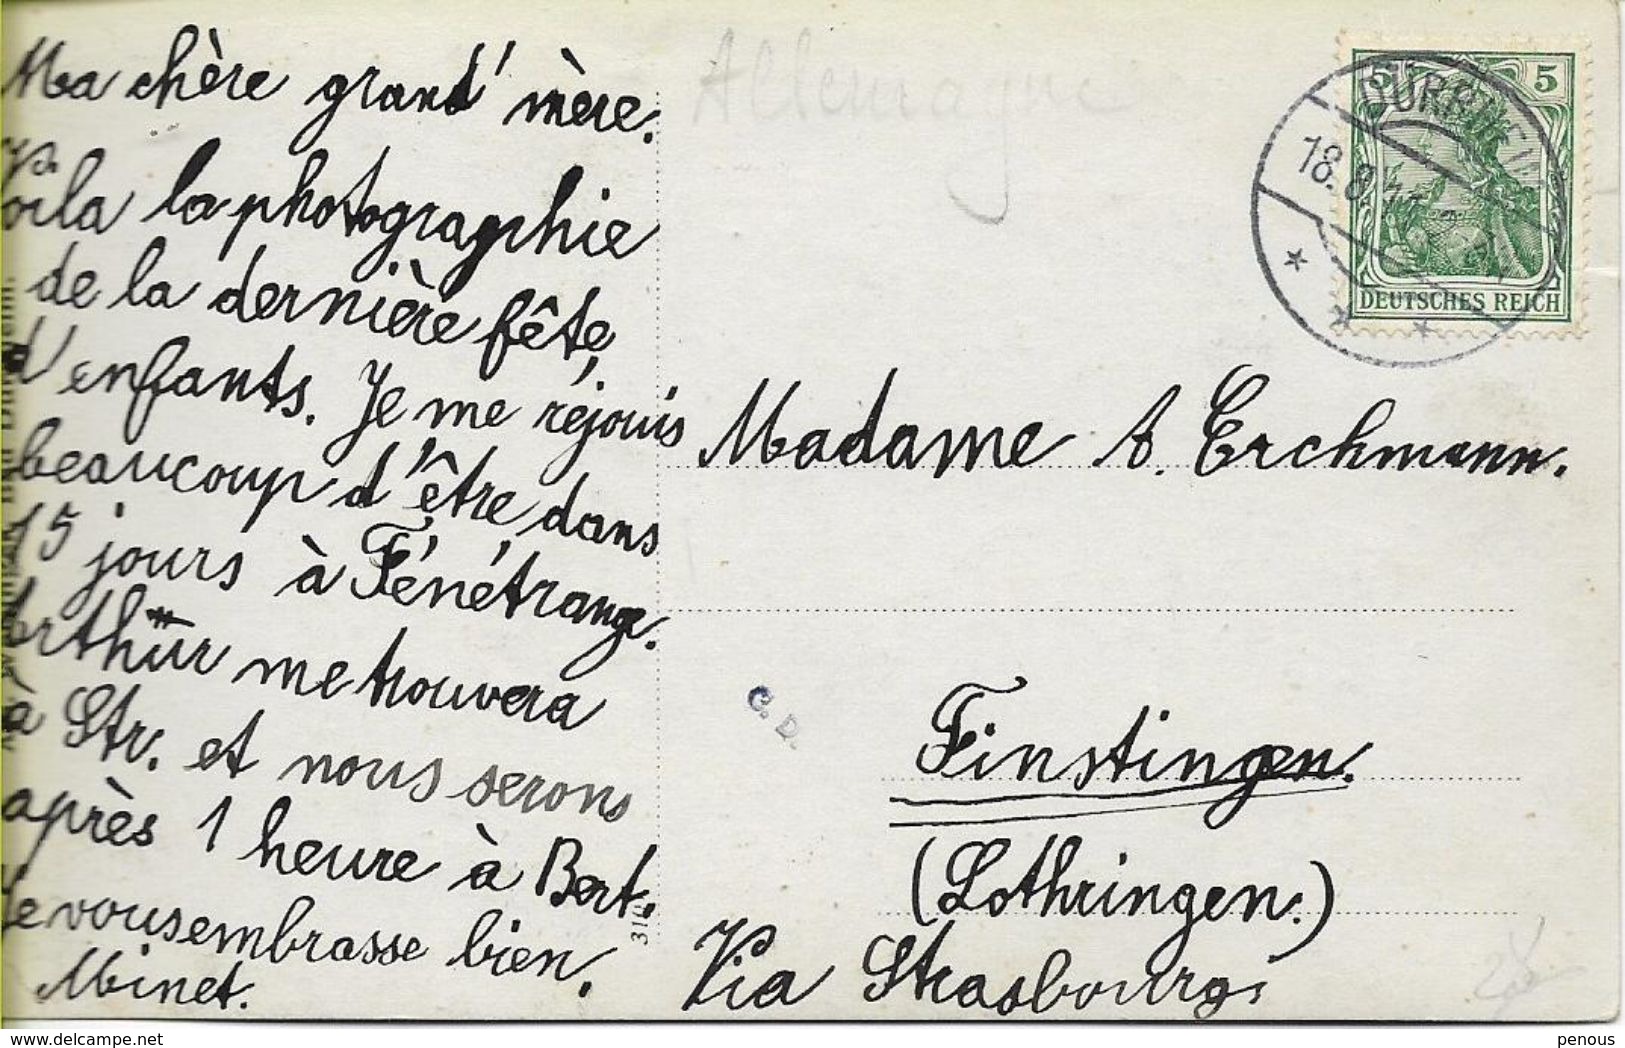 Ma chère grand' mère.
Voila la photographie
de la dernière fête
d'enfants. Je me réjouis
beaucoup d'être dans
15 jours à Fénétrange.
Arthur me trouvera
à Str. et nous serons
après 1 heure à Bert.
Je vous embrasse bien.
Minet.
Allemagne
5 5
DÜRRHEIM
18.8.11
DEUTSCHES REICH
Madame A. Erchmann.
C. D.
Finstingen.
(Lothringen.)
Via Strasbourg
delcampe.net
penous